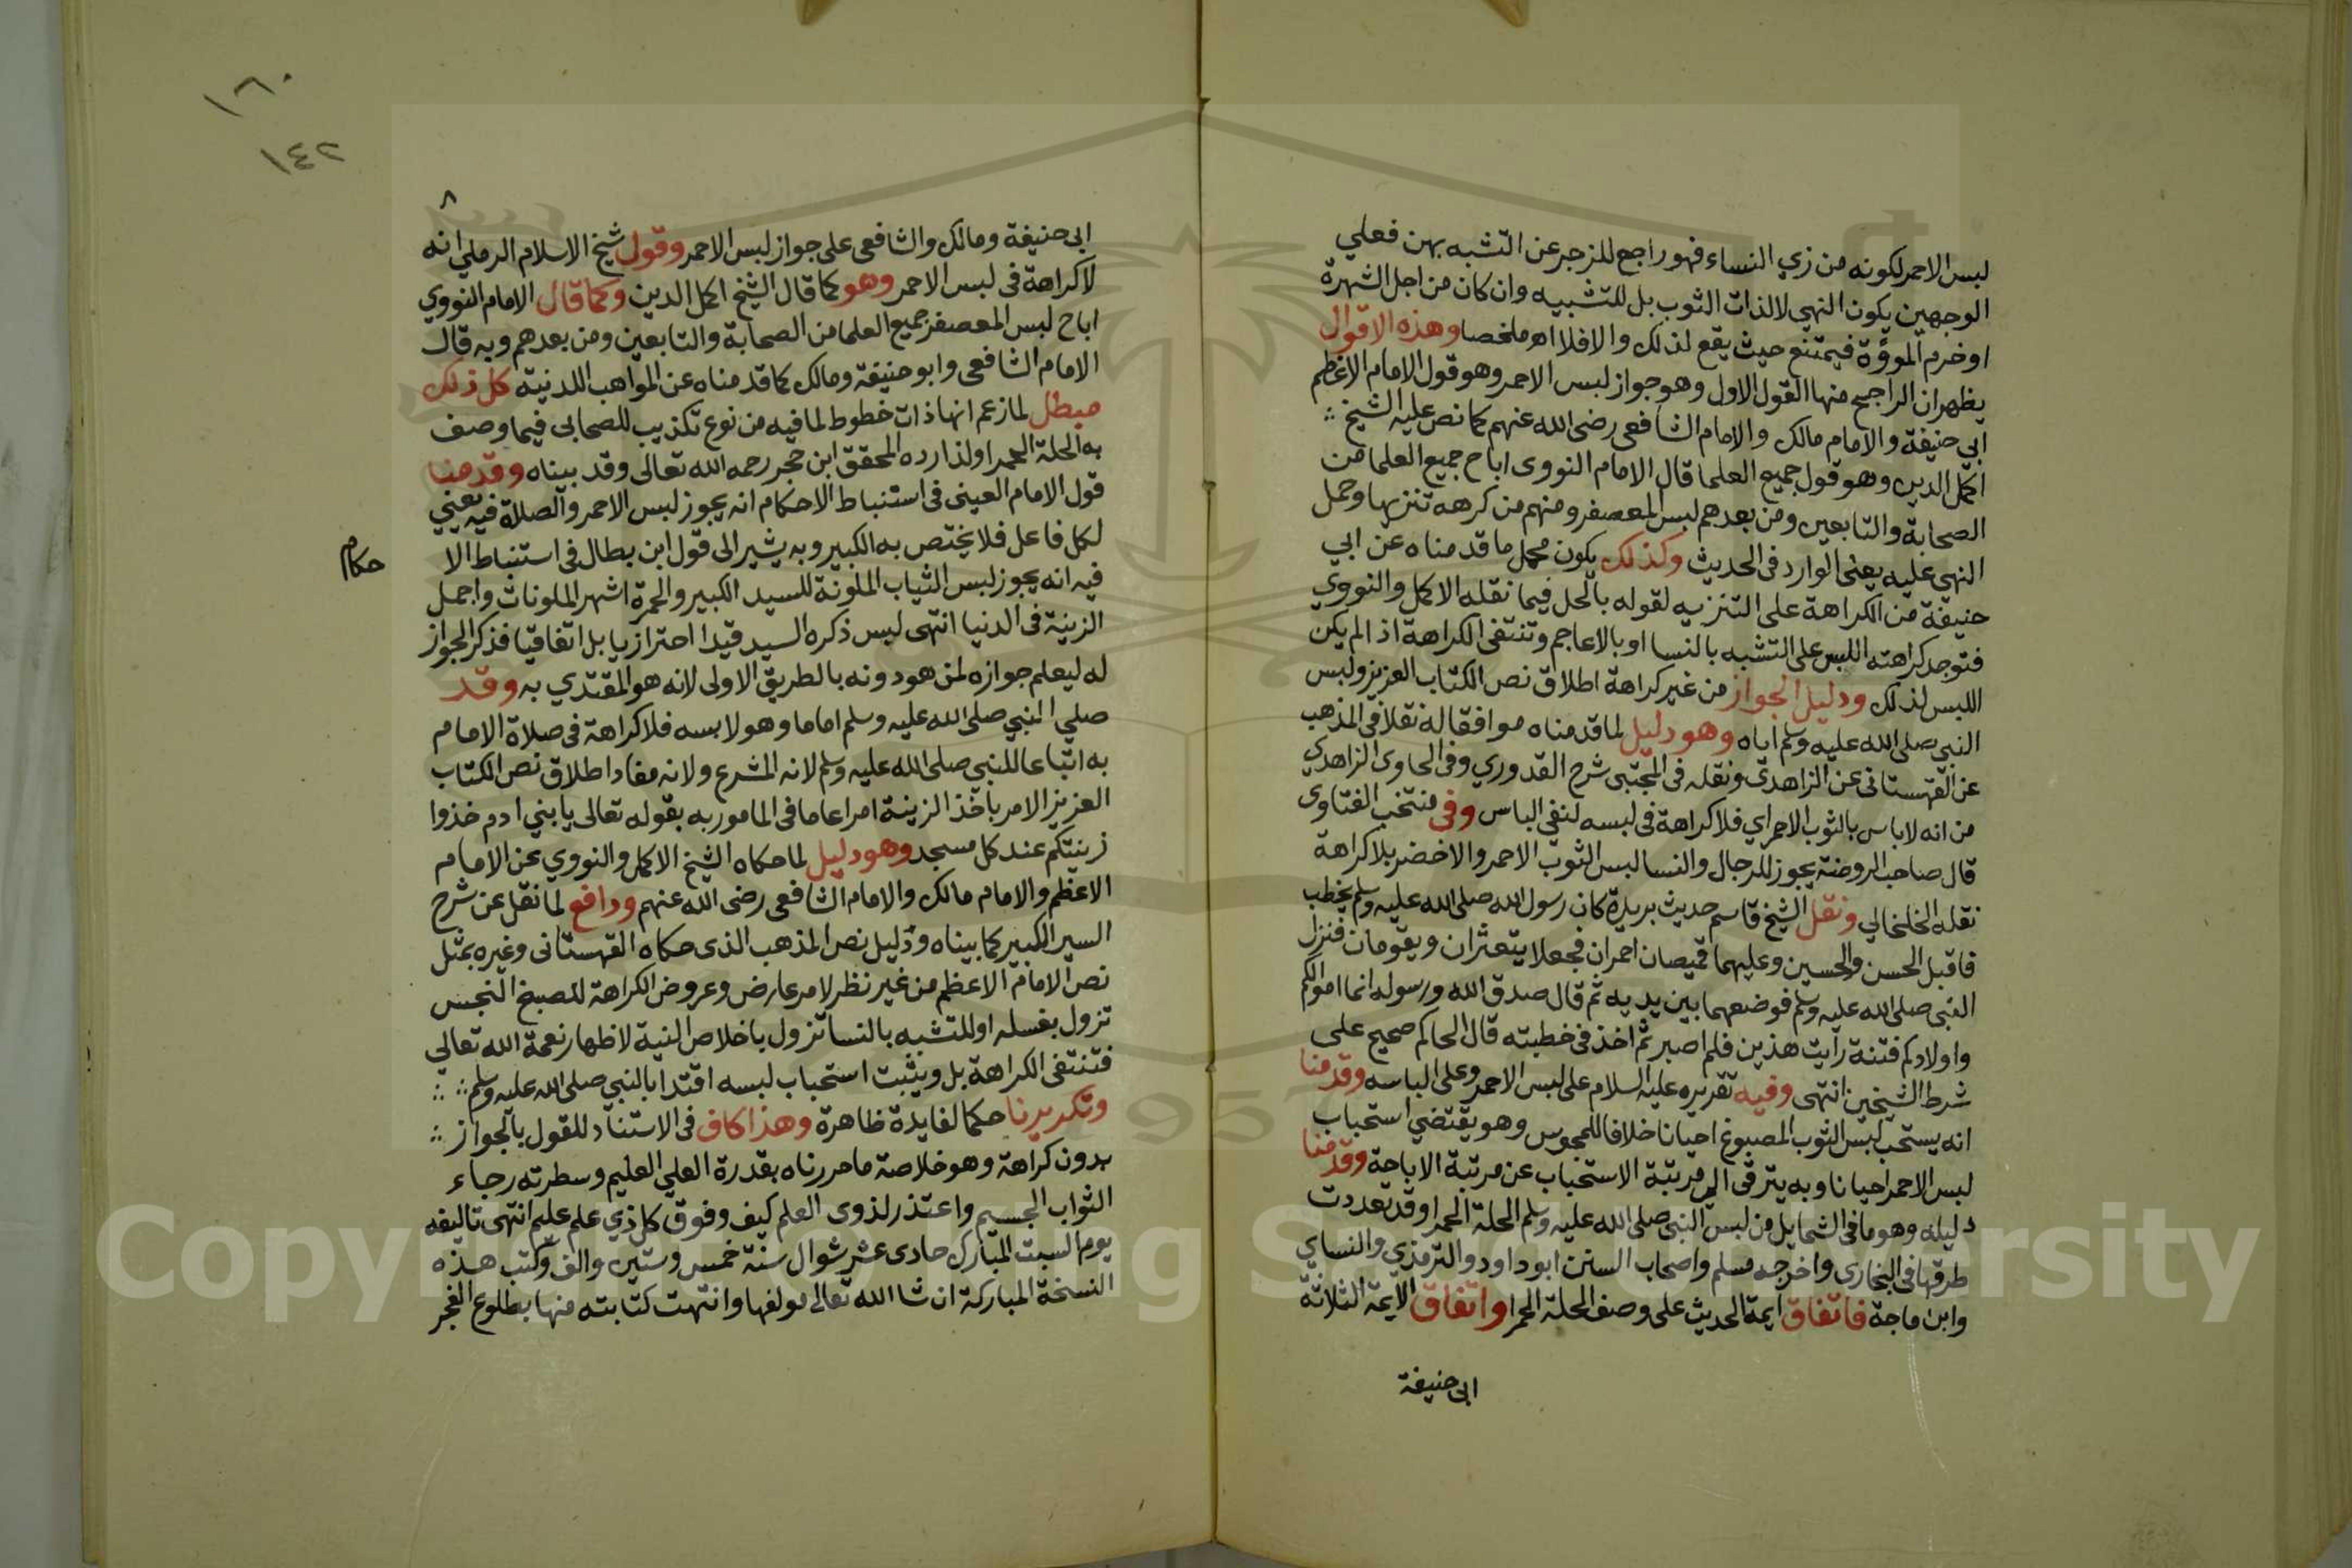 لبس الاحمر لكونه من زي النساء فهو راجع للزجر عن التشبه بهن فعلي
الوجهين يكون النهي لا لذات الثوب بل للتشبيه وان كان من اجل الشهرة
او خرم المروؤة فيمتنع حيث يقع لذلك والا فلا اه ملخصا وهذه الاقوال
يظهر ان الراجح منها القول الاول وهو جواز لبس الاحمر وهو قول الامام الاعظم
ابي حنيفة والامام مالك والامام الشافعي رضي الله عنهم كما نص عليه الشيخ
اكمل الدين وهو قول جميع العلما قال الامام النووى اباح جميع العلما من
الصحابة والتابعين ومن بعدهم لبس المعصفر ومنهم من كرهه تنزيها وحمل
النهى عليه يعنى الوارد فى الحديث وكذلك يكون محمل ما قدمناه عن ابي
حنيفة من الكراهة على التنزيه لقوله بالحل فيما نقله الاكمل والنووي
فتوجد كراهته اللبس على التشبه بالنسا او بالاعاجم وتنتفى الكراهة اذا لم يكن
اللبس لذلك ودليل الجواز من غير كراهة اطلاق نص الكتاب العزيز ولبس
النبي صلى الله عليه وسلم اياه وهو دليل لما قدمناه موافقا له نقلا فى المذهب
عن القهستانى عن الزاهدى ونقله فى المجتبى شرح القدوري وفى الحاوى الزاهدي
من انه لا باس بالثوب الاحمر اي فلا كراهة فى لبسه لنفى الباس وفى منتخب الفتاوى
قال صاحب الروضة يجوز للرجال والنسا لبس الثوب الاحمر والاخضر بلا كراهة
نقله الخلخالي ونقل الشيخ قاسم حديث بريدة كان رسول الله صلى الله عليه وسلم يخطب
فاقبل الحسن والحسين وعليهما قميصان احمران فجعلا يتعثران ويقومان فنزل
النبى صلى الله عليه وسلم فوضعهما بين يديه ثم قال صدق الله ورسوله انما اموالكم
واولادكم فتنة رايت هذين فلم اصبر ثم اخذ فى خطبته قال الحاكم صحيح على
شرط الشيخين انتهى وفيه تقريره عليه السلام على لبس الاحمر وعلى الباسه وقدمنا
انه يستحب لبس الثوب المصبوغ احيانا خلافا للمجوس وهو يقتضي استحباب
لبس الاحمر احيانا وبه يترقى الي مرتبة الاستحباب عن مرتبة الاباحة وقدمنا
دليله وهو ما فى الشمايل من لبس النبى صلى الله عليه وسلم الحلة الحمرا وقد تعددت
طرقها فى البخارى واخرجه مسلم واصحاب السنن ابو داود والترمذي والنساي
وابن ماجة فاتفاق ايمة الحديث على وصف الحلة الحمرا واتفاق الايمة الثلاثة
ابى حنيفة
١٦٠
١٤٢
٨
ابى حنيفة ومالك والشافعى على جواز لبس الاحمر وقول شيخ الاسلام الرملي انه
لا كراهة فى لبس الاحمر وهو كما قال الشيخ اكمل الدين وكما قال الامام النووي
اباح لبس المعصفر جميع العلما من الصحابة والتابعين ومن بعدهم وبه قال
الامام الشافعى وابو حنيفة ومالك كما قدمناه عن المواهب اللدنية كل ذلك
مبطل لما زعم انها ذات خطوط لما فيه من نوع تكذيب للصحابى فيما وصف
به الحلة الحمرا ولذا رده المحقق ابن حجر رحمه الله تعالى وقد بيناه وقدمنا
قول الامام العينى فى استنباط الاحكام انه يجوز لبس الاحمر والصلاة فيه يعني
لكل فاعل فلا يختص به الكبير وبه يشير الى قول ابن بطال فى استنباط الا
حكام
فيه انه يجوز لبس الثياب الملونة للسيد الكبير والحمرة اشهر الملونات واجمل
الزينة فى الدنيا انتهى ليس ذكره السيد قيدا احترازيا بل اتفاقيا فذكر الجواز
له ليعلم جوازه لمن هو دونه بالطريق الاولى لانه هو المقتدي به وقد
صلي النبي صلى الله عليه وسلم اماما وهو لابسه فلا كراهة فى صلاة الامام
به اتباعا للنبي صلى الله عليه وسلم لانه المشرع ولانه مفاد اطلاق نص الكتاب
العزيز الامر باخذ الزينة امرا عاما فى المامور به بقوله تعالى يا بني ادم خذوا
زينتكم عند كل مسجد وهو دليل لما حكاه الشيخ الاكمل والنووي عن الامام
الاعظم والامام مالك والامام الشافعى رضى الله عنهم ودافع لما نقل عن شرح
السير الكبير كما بيناه ودليل نص المذهب الذى حكاه القهستانى وغيره بمثل
نص الامام الاعظم من غير نظر لامر عارض وعروض الكراهة للصبغ النجس
تزول بغسله او للتشبه بالنسا تزول باخلاص النية لاظهار نعمة الله تعالي
فتنتفى الكراهة بل ويثبت استحباب لبسه اقتدا بالنبي صلى الله عليه وسلم
وتكريرنا حكما لفايدة ظاهرة وهذا كاف فى الاستناد للقول بالجواز
بدون كراهة وهو خلاصة ما حررناه بقدرة العلي العليم وسطرته رجاء
الثواب الجسيم واعتذر لذوى العلم كيف وفوق كل ذي علم عليم انتهى تاليفه
يوم السبت المبارك حادى عشر شوال سنة خمس وستين والف وكتب هذه
النسخة المباركة ان شا الله تعالى مولفها وانتهت كتابته منها بطلوع الفجر
Copyright © King Saud University
1957